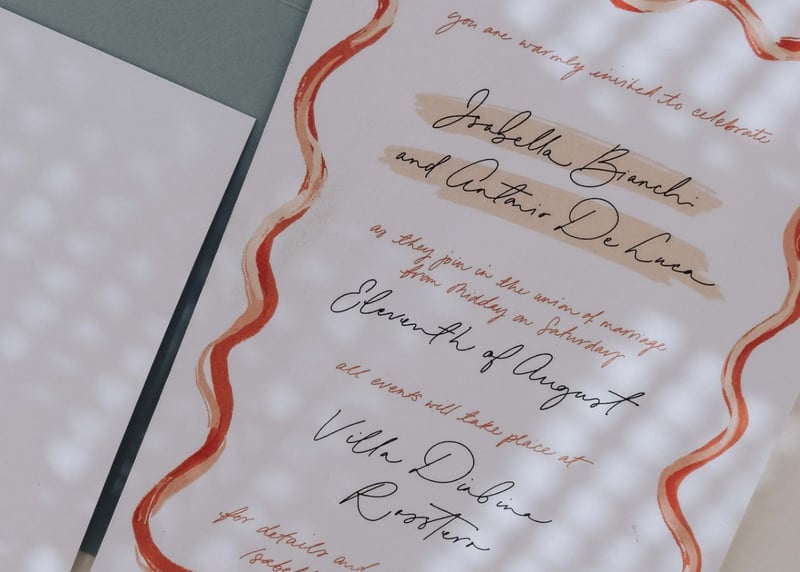 you are warmly invited to celebrate
Isabella Bianchi
and Antonio De Luca
as they join in the union of marriage
from Midday on Saturday
Eleventh of August
all events will take place at
Villa
for details and